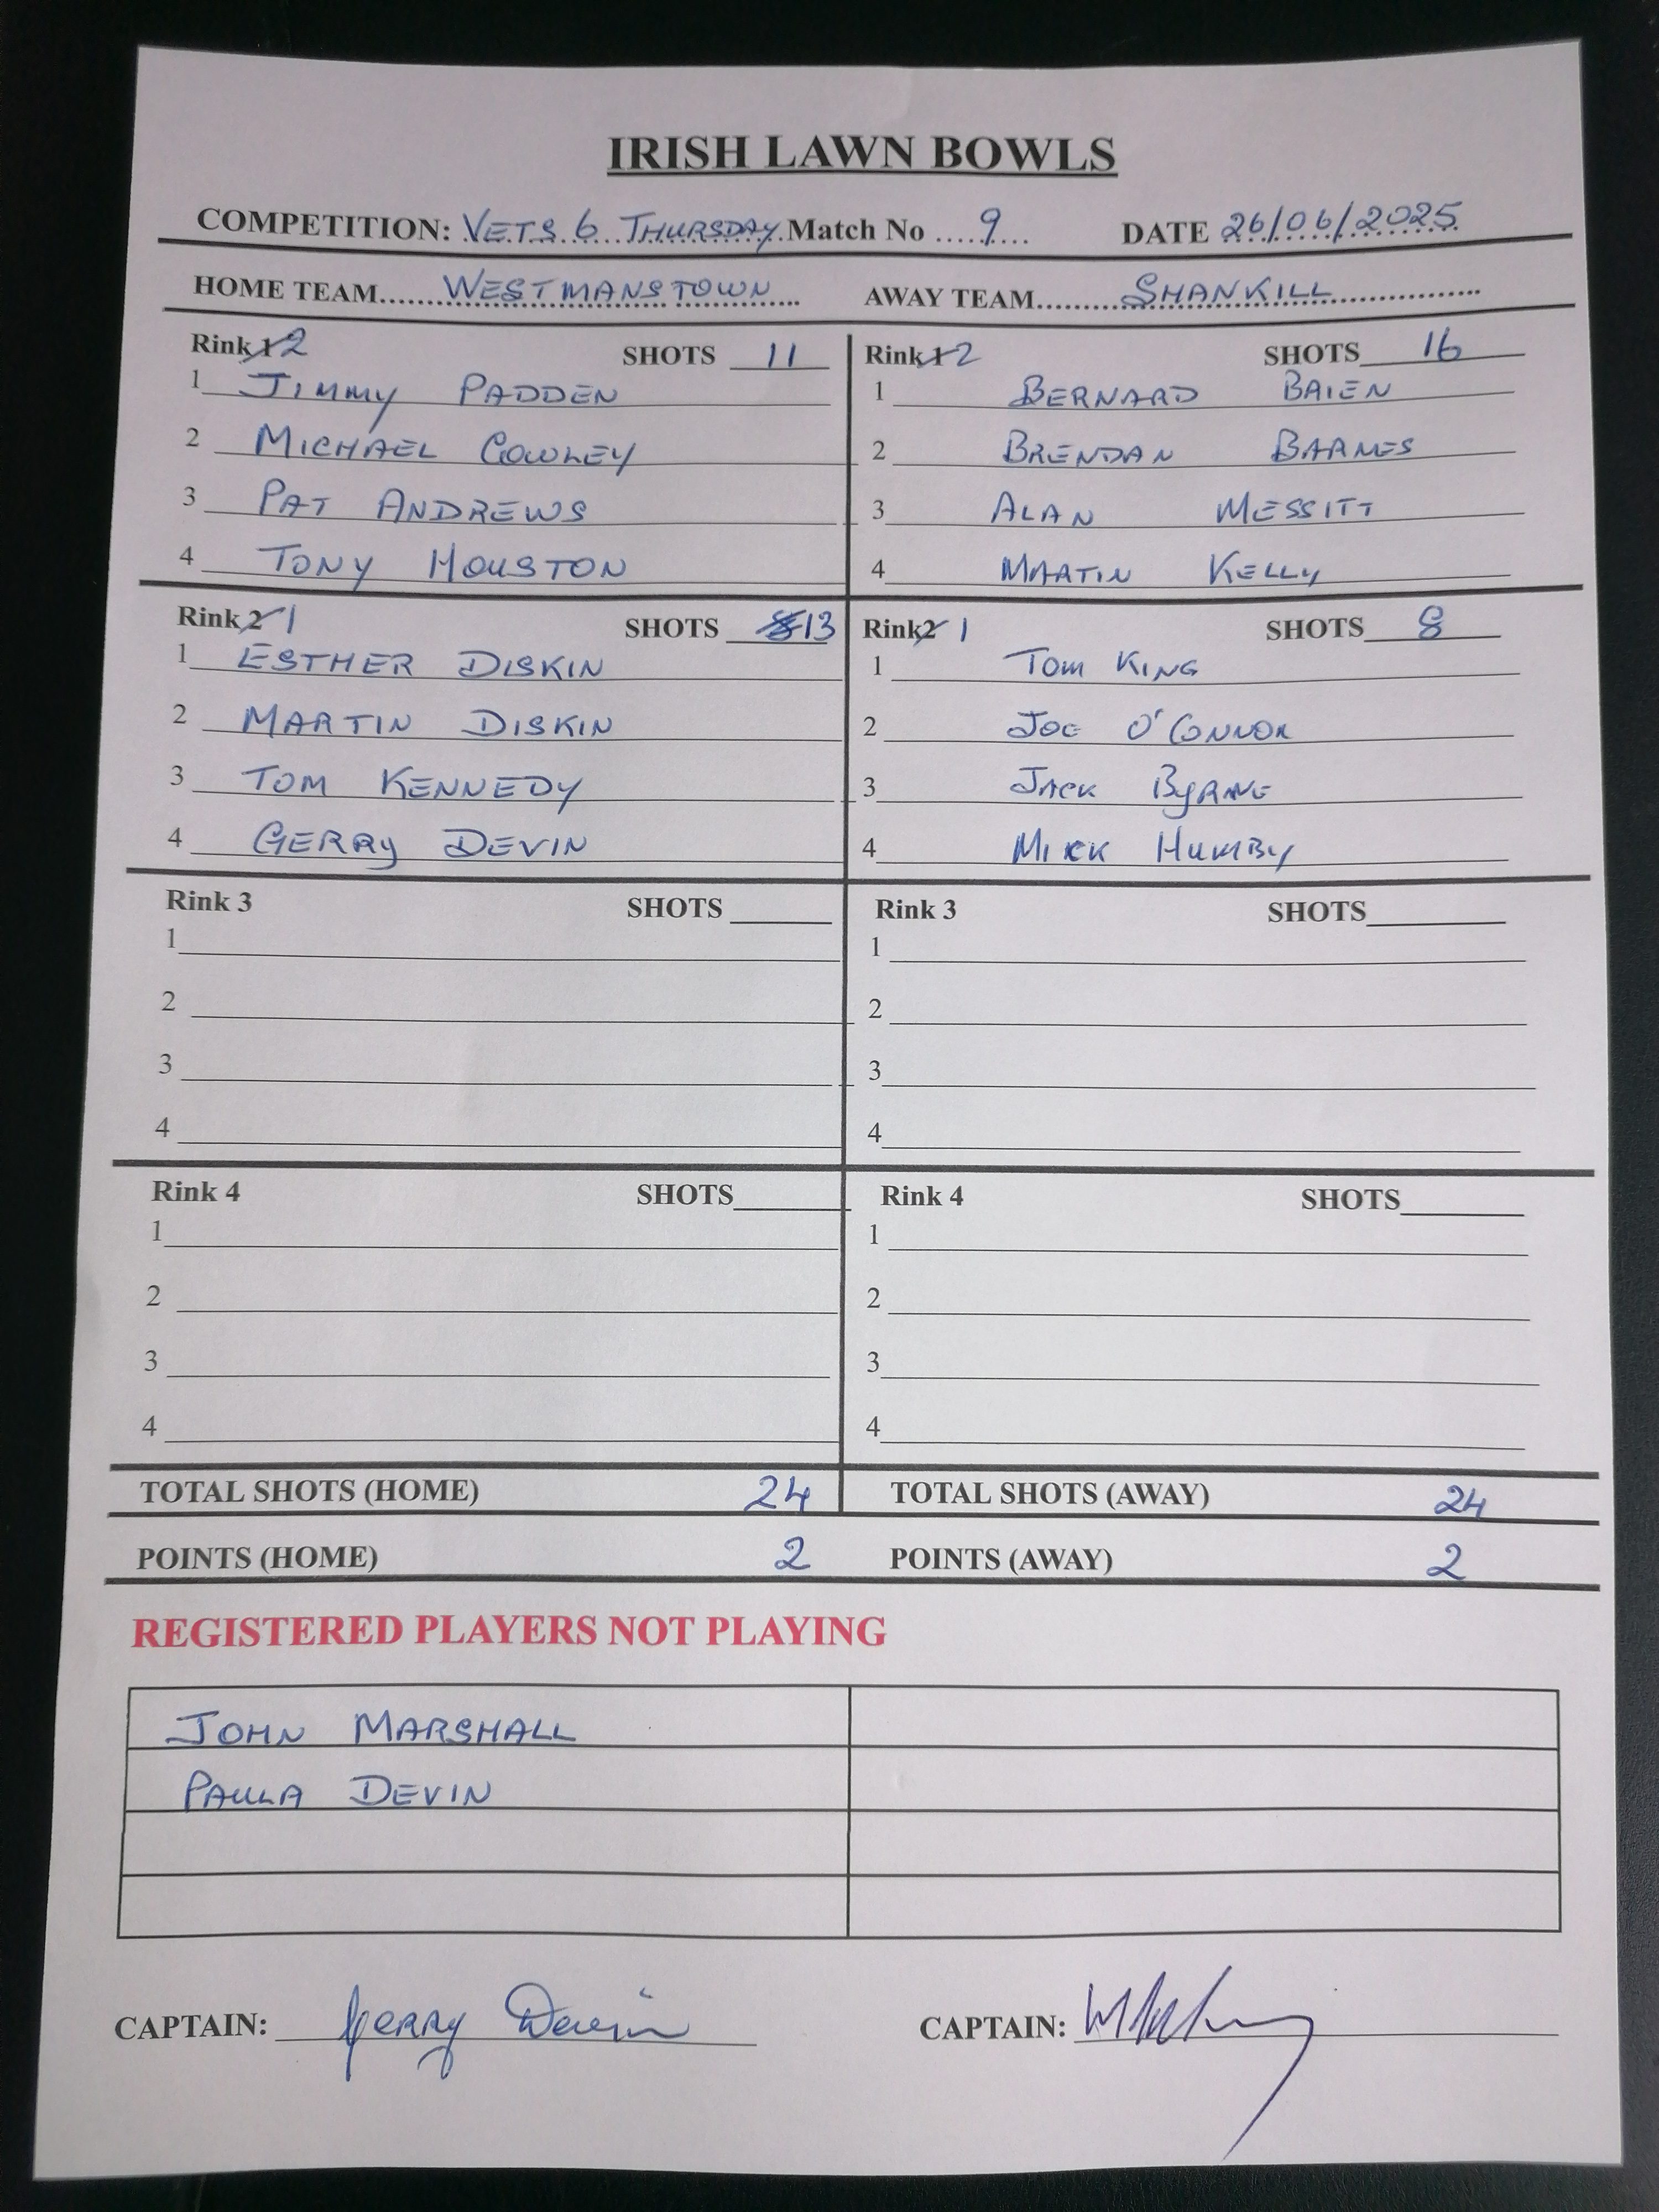 IRISH LAWN BOWLS
COMPETITION: VETS 6 THURSDAY Match No ....9.... DATE 26/06/2025
HOME TEAM......WESTMANSTOWN...... AWAY TEAM.........SHANKILL...............
Rink 1 2 SHOTS 11
1 JIMMY PADDEN
2 MICHAEL COWLEY
3 PAT ANDREWS
4 TONY HOUSTON
Rink 1 2 SHOTS 16
1 BERNARD BAIEN
2 BRENDAN BARNES
3 ALAN MESSITT
4 MARTIN KELLY
Rink 2 1 SHOTS 13
1 ESTHER DISKIN
2 MARTIN DISKIN
3 TOM KENNEDY
4 GERRY DEVIN
Rink 2 1 SHOTS 8
1 TOM KING
2 JOE O'CONNOR
3 JACK BYRNE
4 MICK HUMBY
Rink 3 SHOTS
1
2
3
4
Rink 3 SHOTS
1
2
3
4
Rink 4 SHOTS
1
2
3
4
Rink 4 SHOTS
1
2
3
4
TOTAL SHOTS (HOME) 24 TOTAL SHOTS (AWAY) 24
POINTS (HOME) 2 POINTS (AWAY) 2
REGISTERED PLAYERS NOT PLAYING
JOHN MARSHALL
PAULA DEVIN
CAPTAIN: Gerry Devin CAPTAIN: